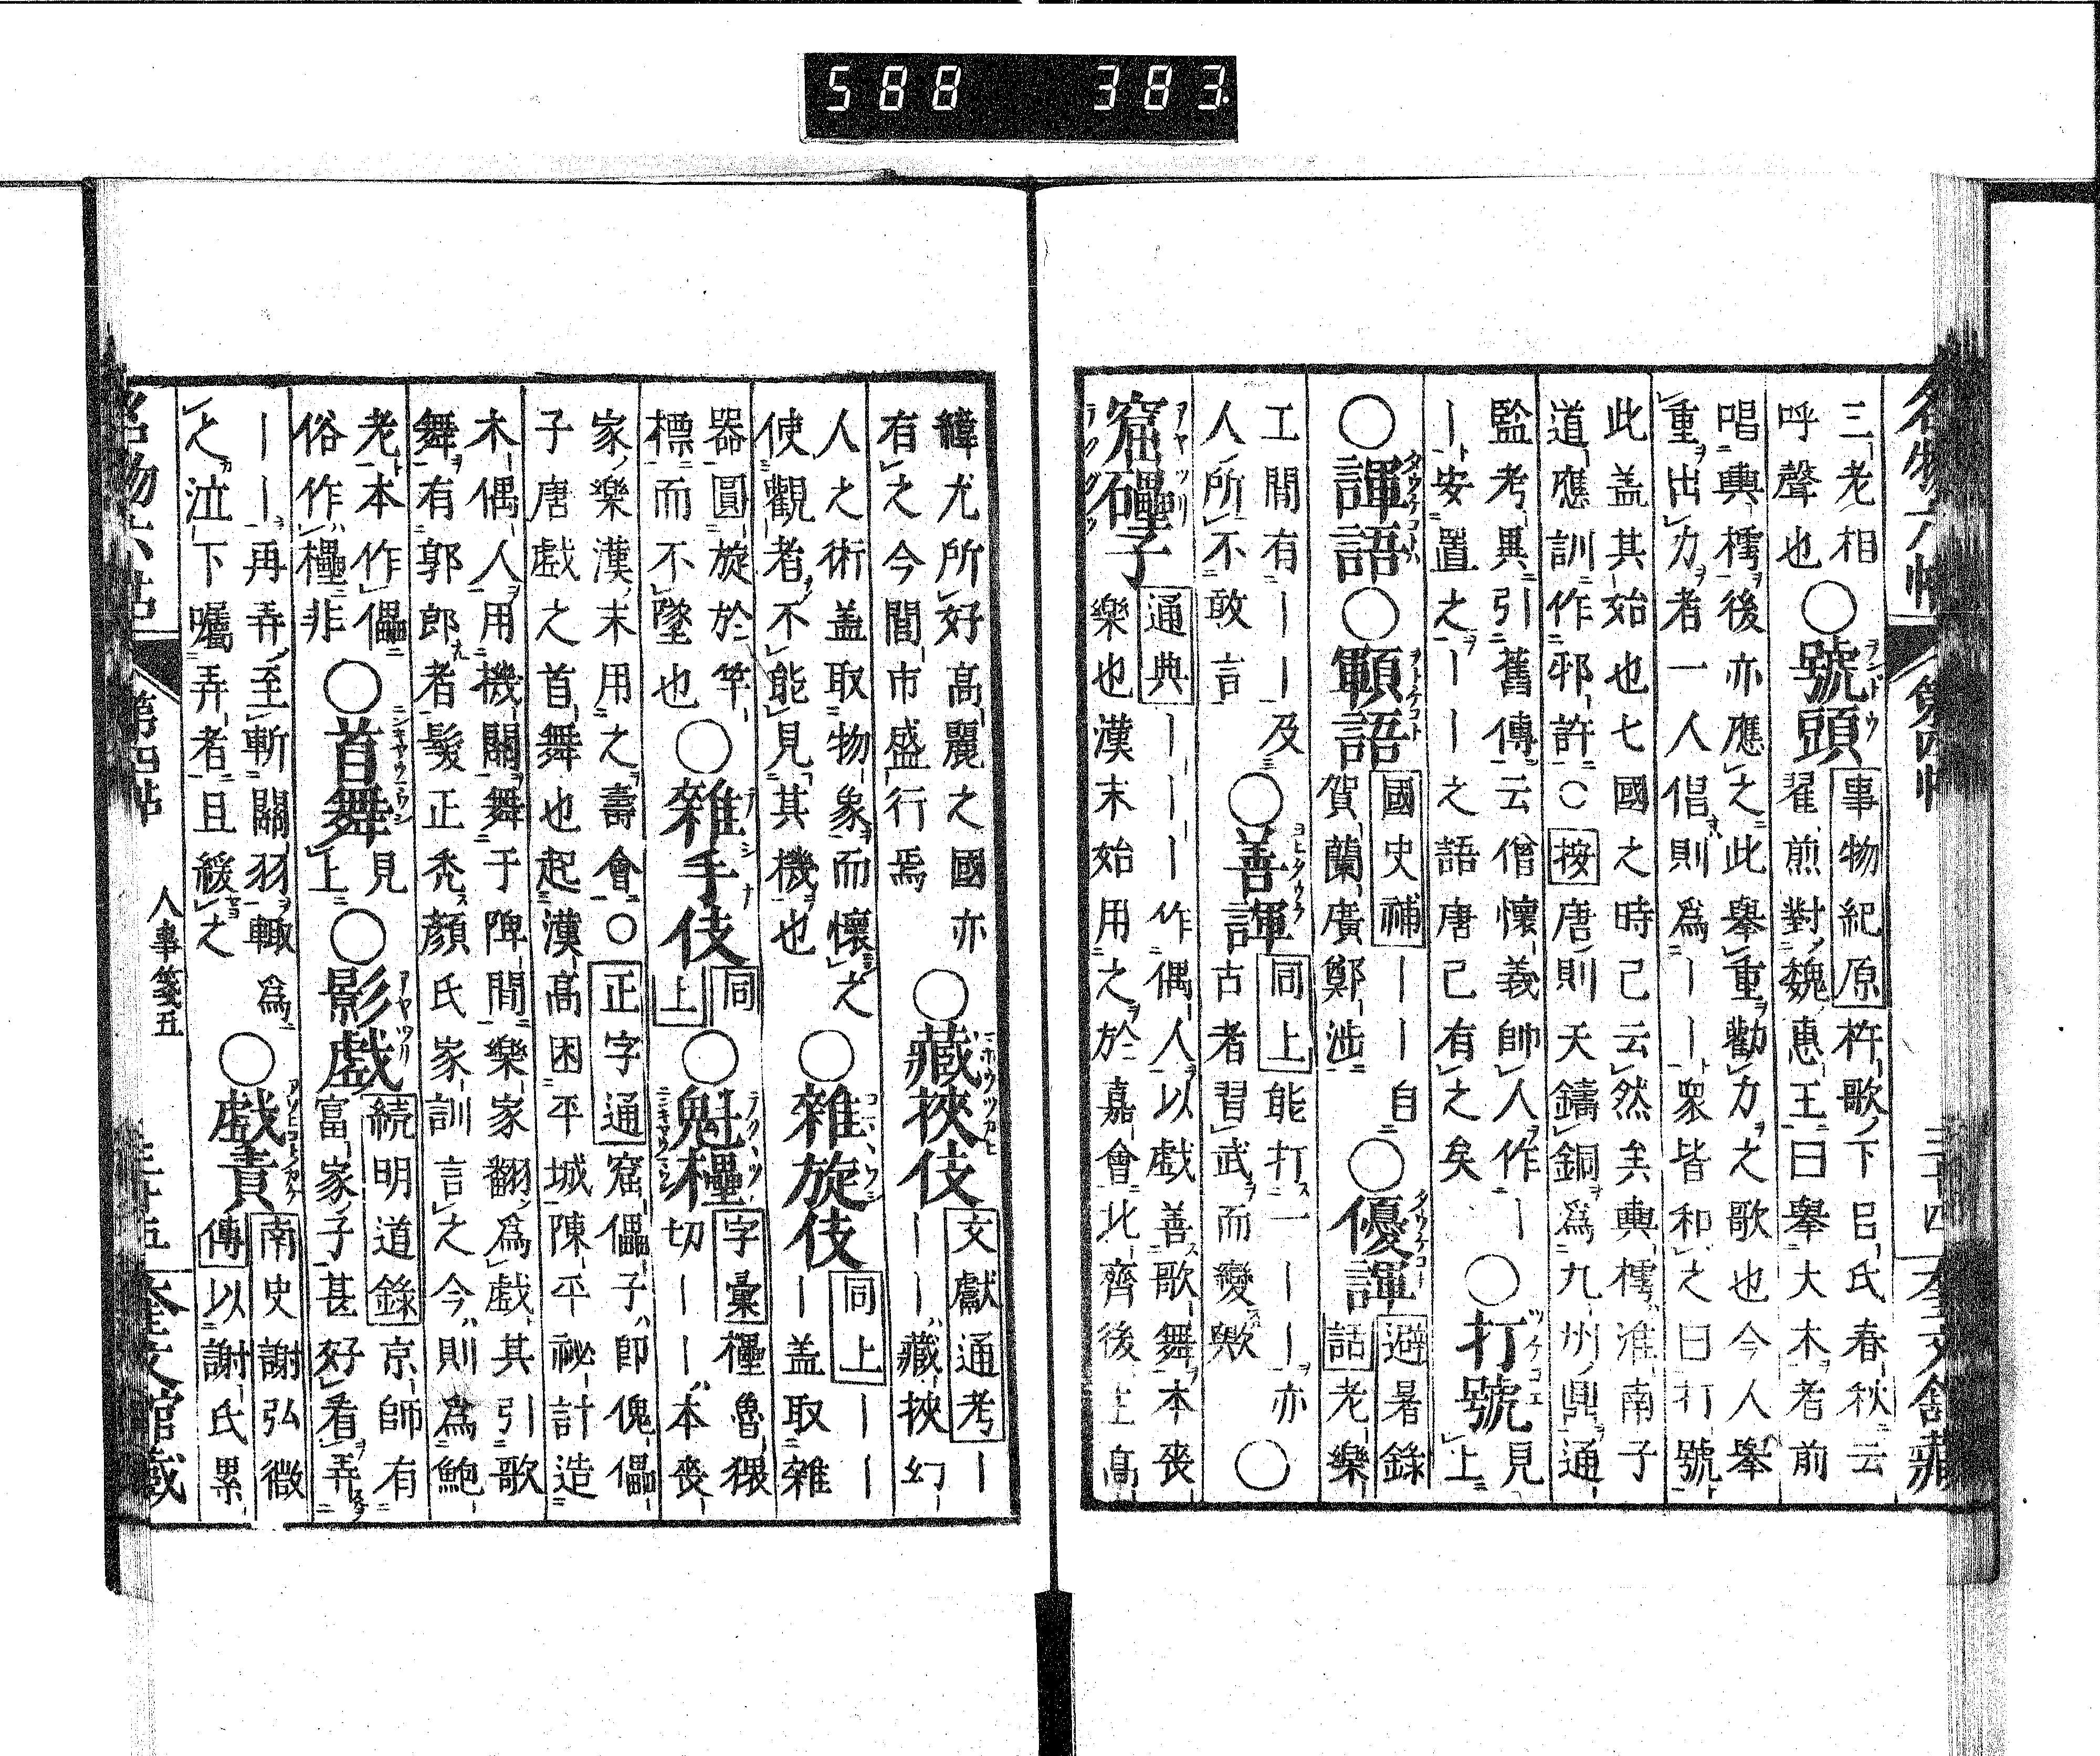 名物六帖 第四帖 三十四 奎文館藏
三老相
呼聲也
○號頭
事物紀原杵歌下呂氏春秋云
翟煎對魏惠王曰舉大木者前
唱輿樗後亦應之此舉重勸力之歌也今人舉
重出力者一人倡則爲——衆皆和之曰打號
此盖其始也七國之時已云然矣輿樗淮南子
道應訓作邪許○按唐則天鑄銅爲九州鼎通
監考異引舊傳云僧懷義帥人作—
—安置之——之語唐已有之矣
○打號
見
上
○諢語
○顐語
國史補——自
賀蘭廣鄭涉
○優諢
避暑錄
話老樂
工間有——及
人所不敢言
○善諢
同上能打一——亦
古者習武而變歟
○
窟礧子
通典————作偶人以戲善歌舞本喪
樂也漢末始用之於嘉會北齊後主高
緯尤所好高麗之國亦
有之今閭市盛行焉
○藏挾伎
文獻通考—
——藏挾幻
人之術盖取物象而懷之
使觀者不能見其機也
○雜旋伎
同上——
—盖取雜
器圓旋於竿
標而不墜也
○雜手伎
同
上
○魁櫑
字彙櫑魯猥
切——本喪
家樂漢末用之壽會○正字通窟儡子即傀儡
子唐戲之首舞也起漢高困平城陳平祕計造
木偶人用機關舞于陴間樂家翻爲戲其引歌
舞有郭郎者髮正禿顔氏家訓言之今則爲鮑
老本作儡
俗作櫑非
○首舞
見
上
○影戲
続明道錄京師有
富家子甚好看弄
——再弄至斬關羽輒爲
之泣下囑弄者且緩之
○戲責
南史謝弘微
傳以謝氏累
名物六帖 第四帖 人事箋五 三十五 奎文館藏
588 383